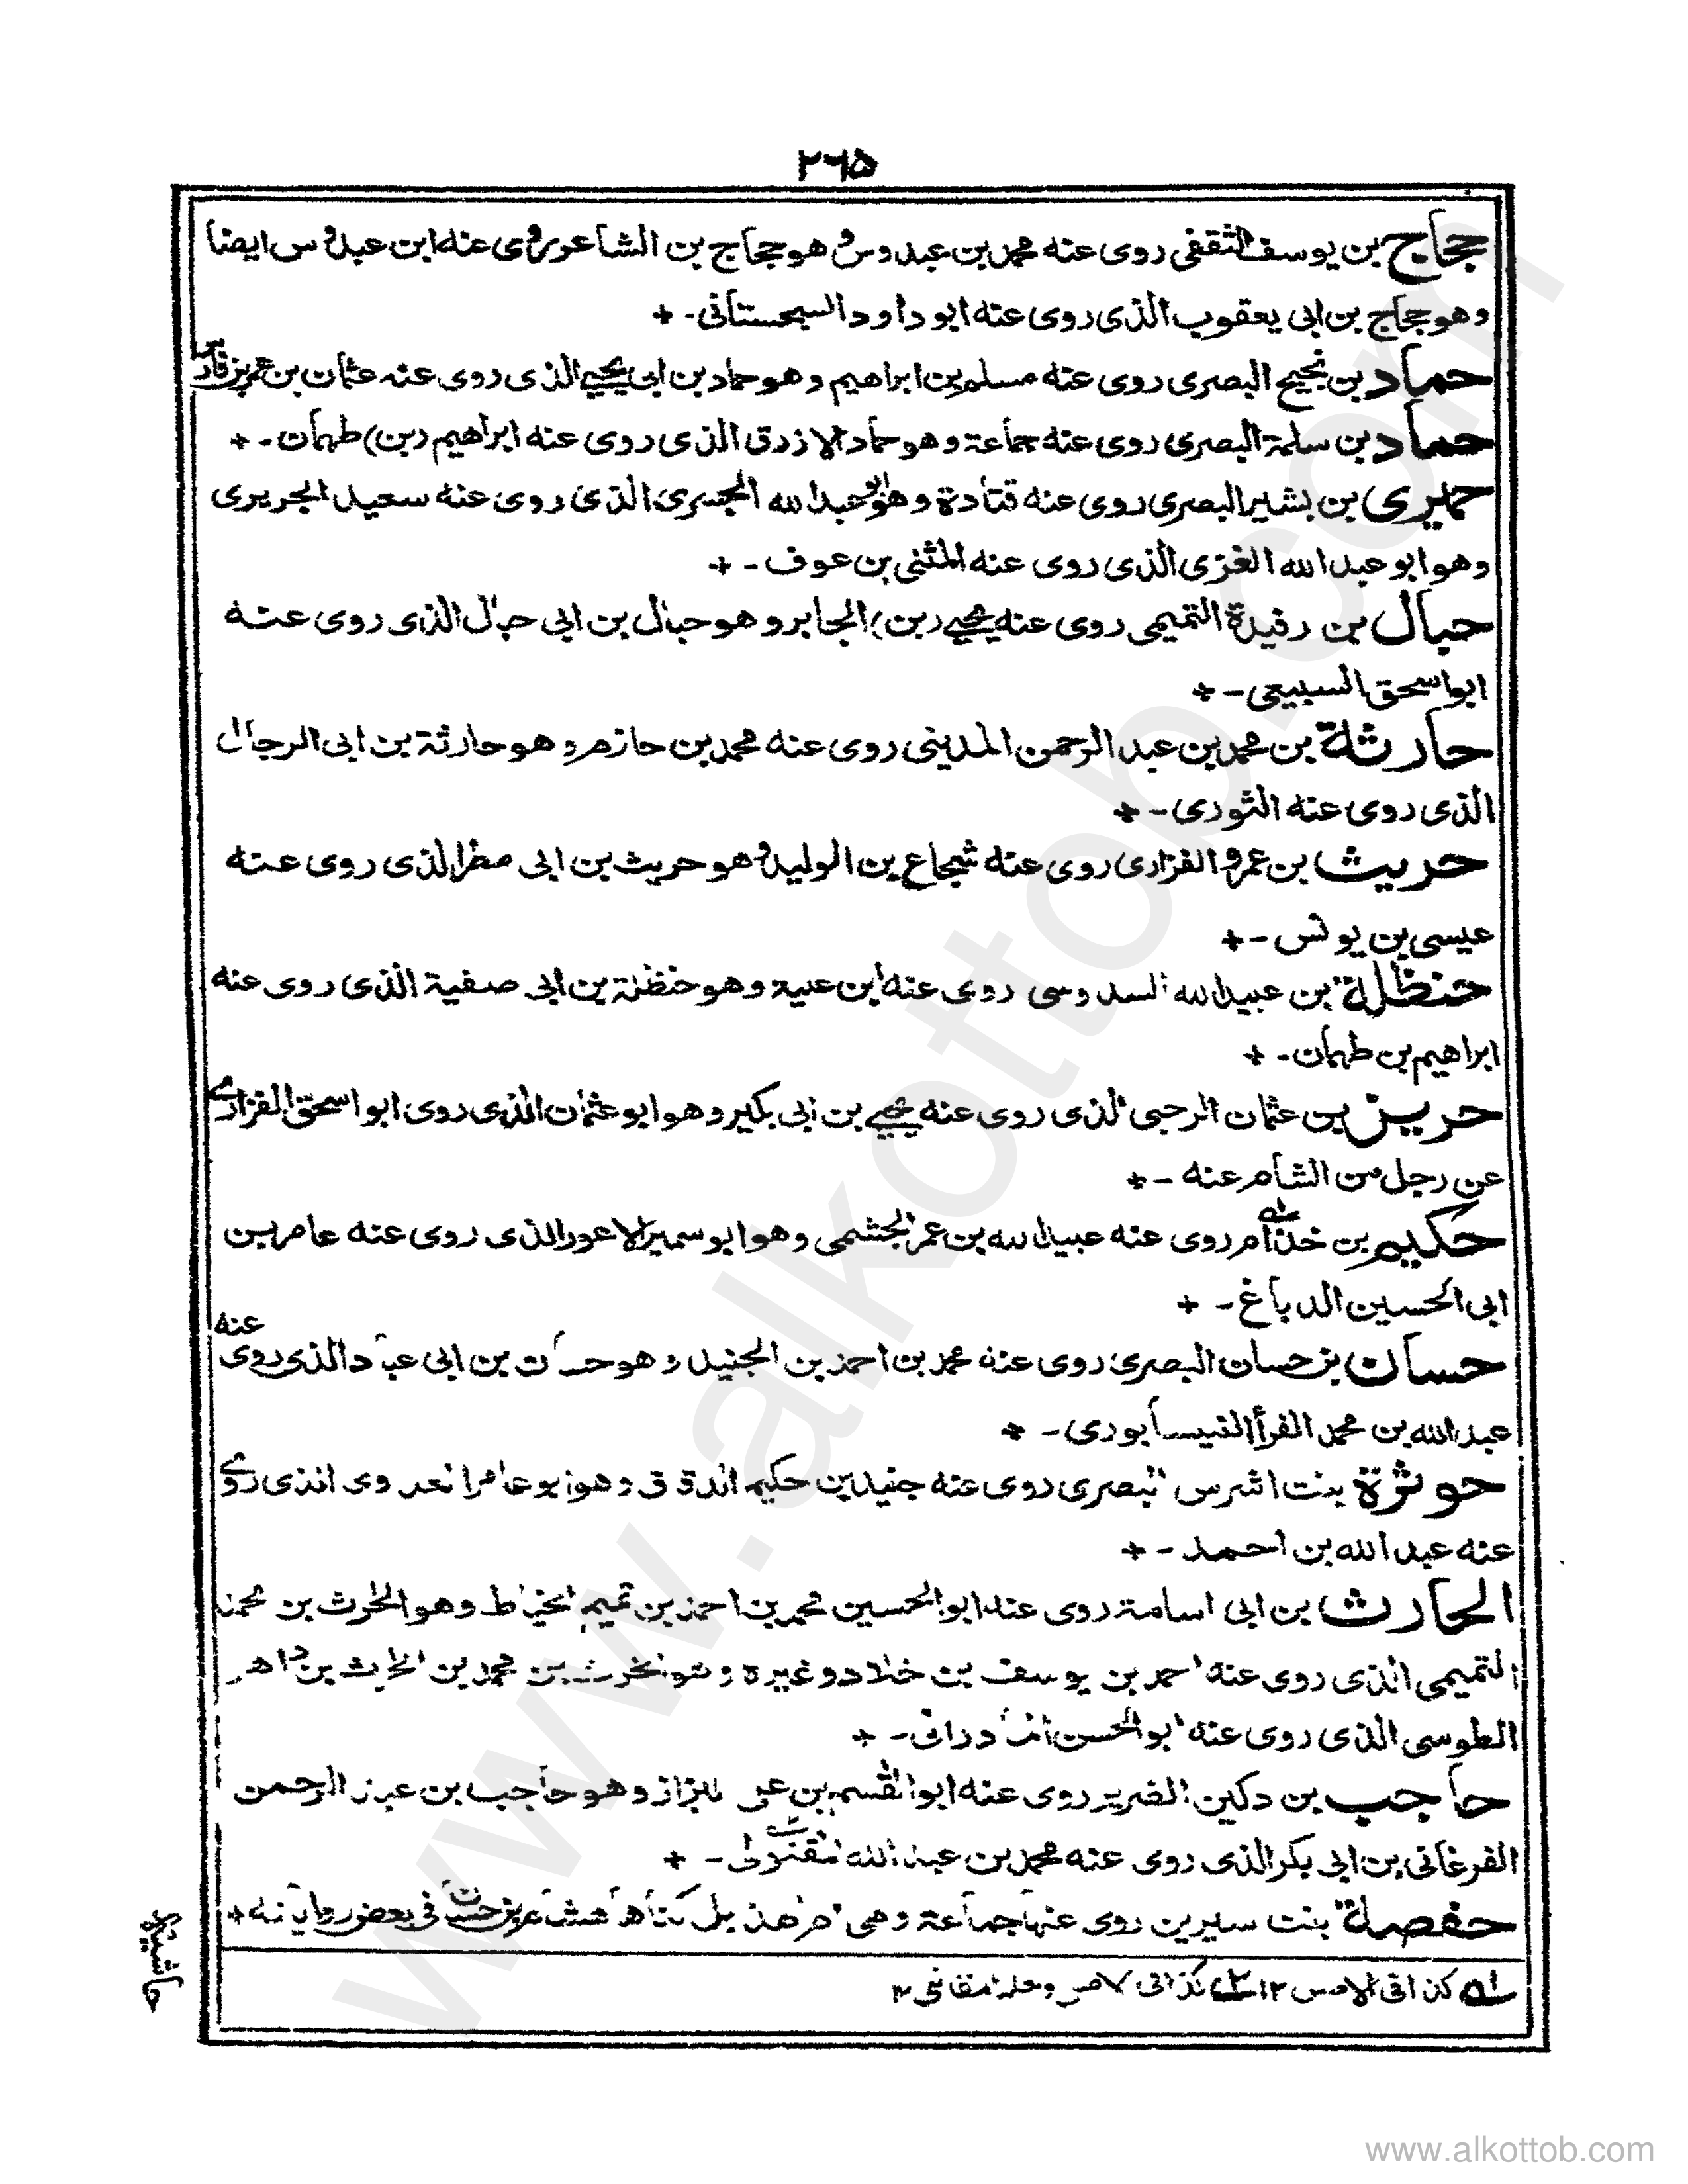 ٢٦٥
حجاج بن يوسف الثقفى روى عنه محمد بن عبدوس وهو حجاج بن الشاعر روى عنه ابن عبدوس ايضا
وهو حجاج بن ابى يعقوب الذى روى عنه ابو داود السجستانى-+
حماد بن نجيح البصرى روى عنه مسلم بن ابراهيم وهو حماد بن ابى يحيى الذى روى عنه عثمان بن عمر بن فارس
حماد بن سلمة البصرى روى عنه جماعة وهو حماد الازرق الذى روى عنه ابراهيم (بن) طهمان-+
حميرى بن بشير البصرى روى عنه قتادة وهو ابو عبد الله الجسرى الذى روى عنه سعيد الجريرى
وهو ابو عبد الله الغزى الذى روى عنه المثنى بن عوف-+
حبال بن رفيدة التميمى روى عنه يحيى (بن) الجابر وهو حبال بن ابى حبال الذى روى عنه
ابو اسحق السبيعى-+
حارثة بن محمد بن عبد الرحمن المدينى روى عنه محمد بن حازم وهو حارثة بن ابى الرجال
الذى روى عنه الثورى-+
حريث بن عمرو الفزارى روى عنه شجاع بن الوليد وهو حريث بن ابى مطر الذى روى عنه
عيسى بن يونس-+
حنظلة بن عبيد الله السدوسى روى عنه ابن علية وهو حنظلة بن ابى صفية الذى روى عنه
ابراهيم بن طهمان-+
حريز بن عثمان الرحبى الذى روى عنه يحيى بن ابى بكير وهو ابو عثمان الذى روى ابو اسحق الفزارى
عن رجل من الشام عنه-+
حكيم بن خذام روى عنه عبيد الله بن عمر الجشمى وهو ابو سمير الاعور الذى روى عنه عامر بن
ابى الحسين الدباغ-+
حسان بن حسان البصرى روى عنه محمد بن احمد بن الجنيد وهو حسان بن ابى عباد الذى روى عنه
عبد الله بن محمد الفرأ النيسابورى-+
حوثرة بنت اشرس البصرى روى عنه جنيد بن حكيم الدقاق وهو ابو عامر العدوى الذى روى
عنه عبد الله بن احمد-+
الحارث بن ابى اسامة روى عنه ابو الحسين محمد بن احمد بن تميم الخياط وهو الحرث بن محمد
التميمى الذى روى عنه احمد بن يوسف بن خلاد وغيره وهو الحرث بن محمد بن الحارث بن داهر
الطوسى الذى روى عنه ابو الحسن المادرانى-+
حاجب بن دكين الضرير روى عنه ابو القسم بن على البزاز وهو حاجب بن عبد الرحمن
الفرغانى بن ابى بكر الذى روى عنه محمد بن عبد الله -+
حفصة بنت سيرين روى عنها جماعة وهى ام هذيل كناها هشام بن حسان فى بعض رواياته+
كذا فى الاصل ١٢ كذا فى الاصل ولعله
www.alkottob.com
www.alkottob.com